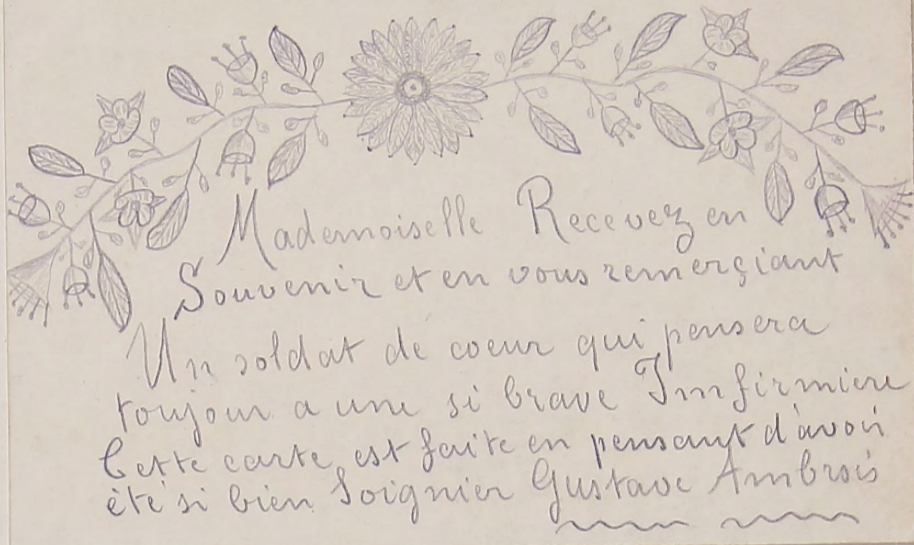 Mademoiselle Recevez en
Souvenir et en vous remerçiant
Un soldat de coeur qui pensera
toujour a une si brave Imfirmiere
Cette carte est faite en pensant d'avoir
été si bien Soignier Gustave Ambrois